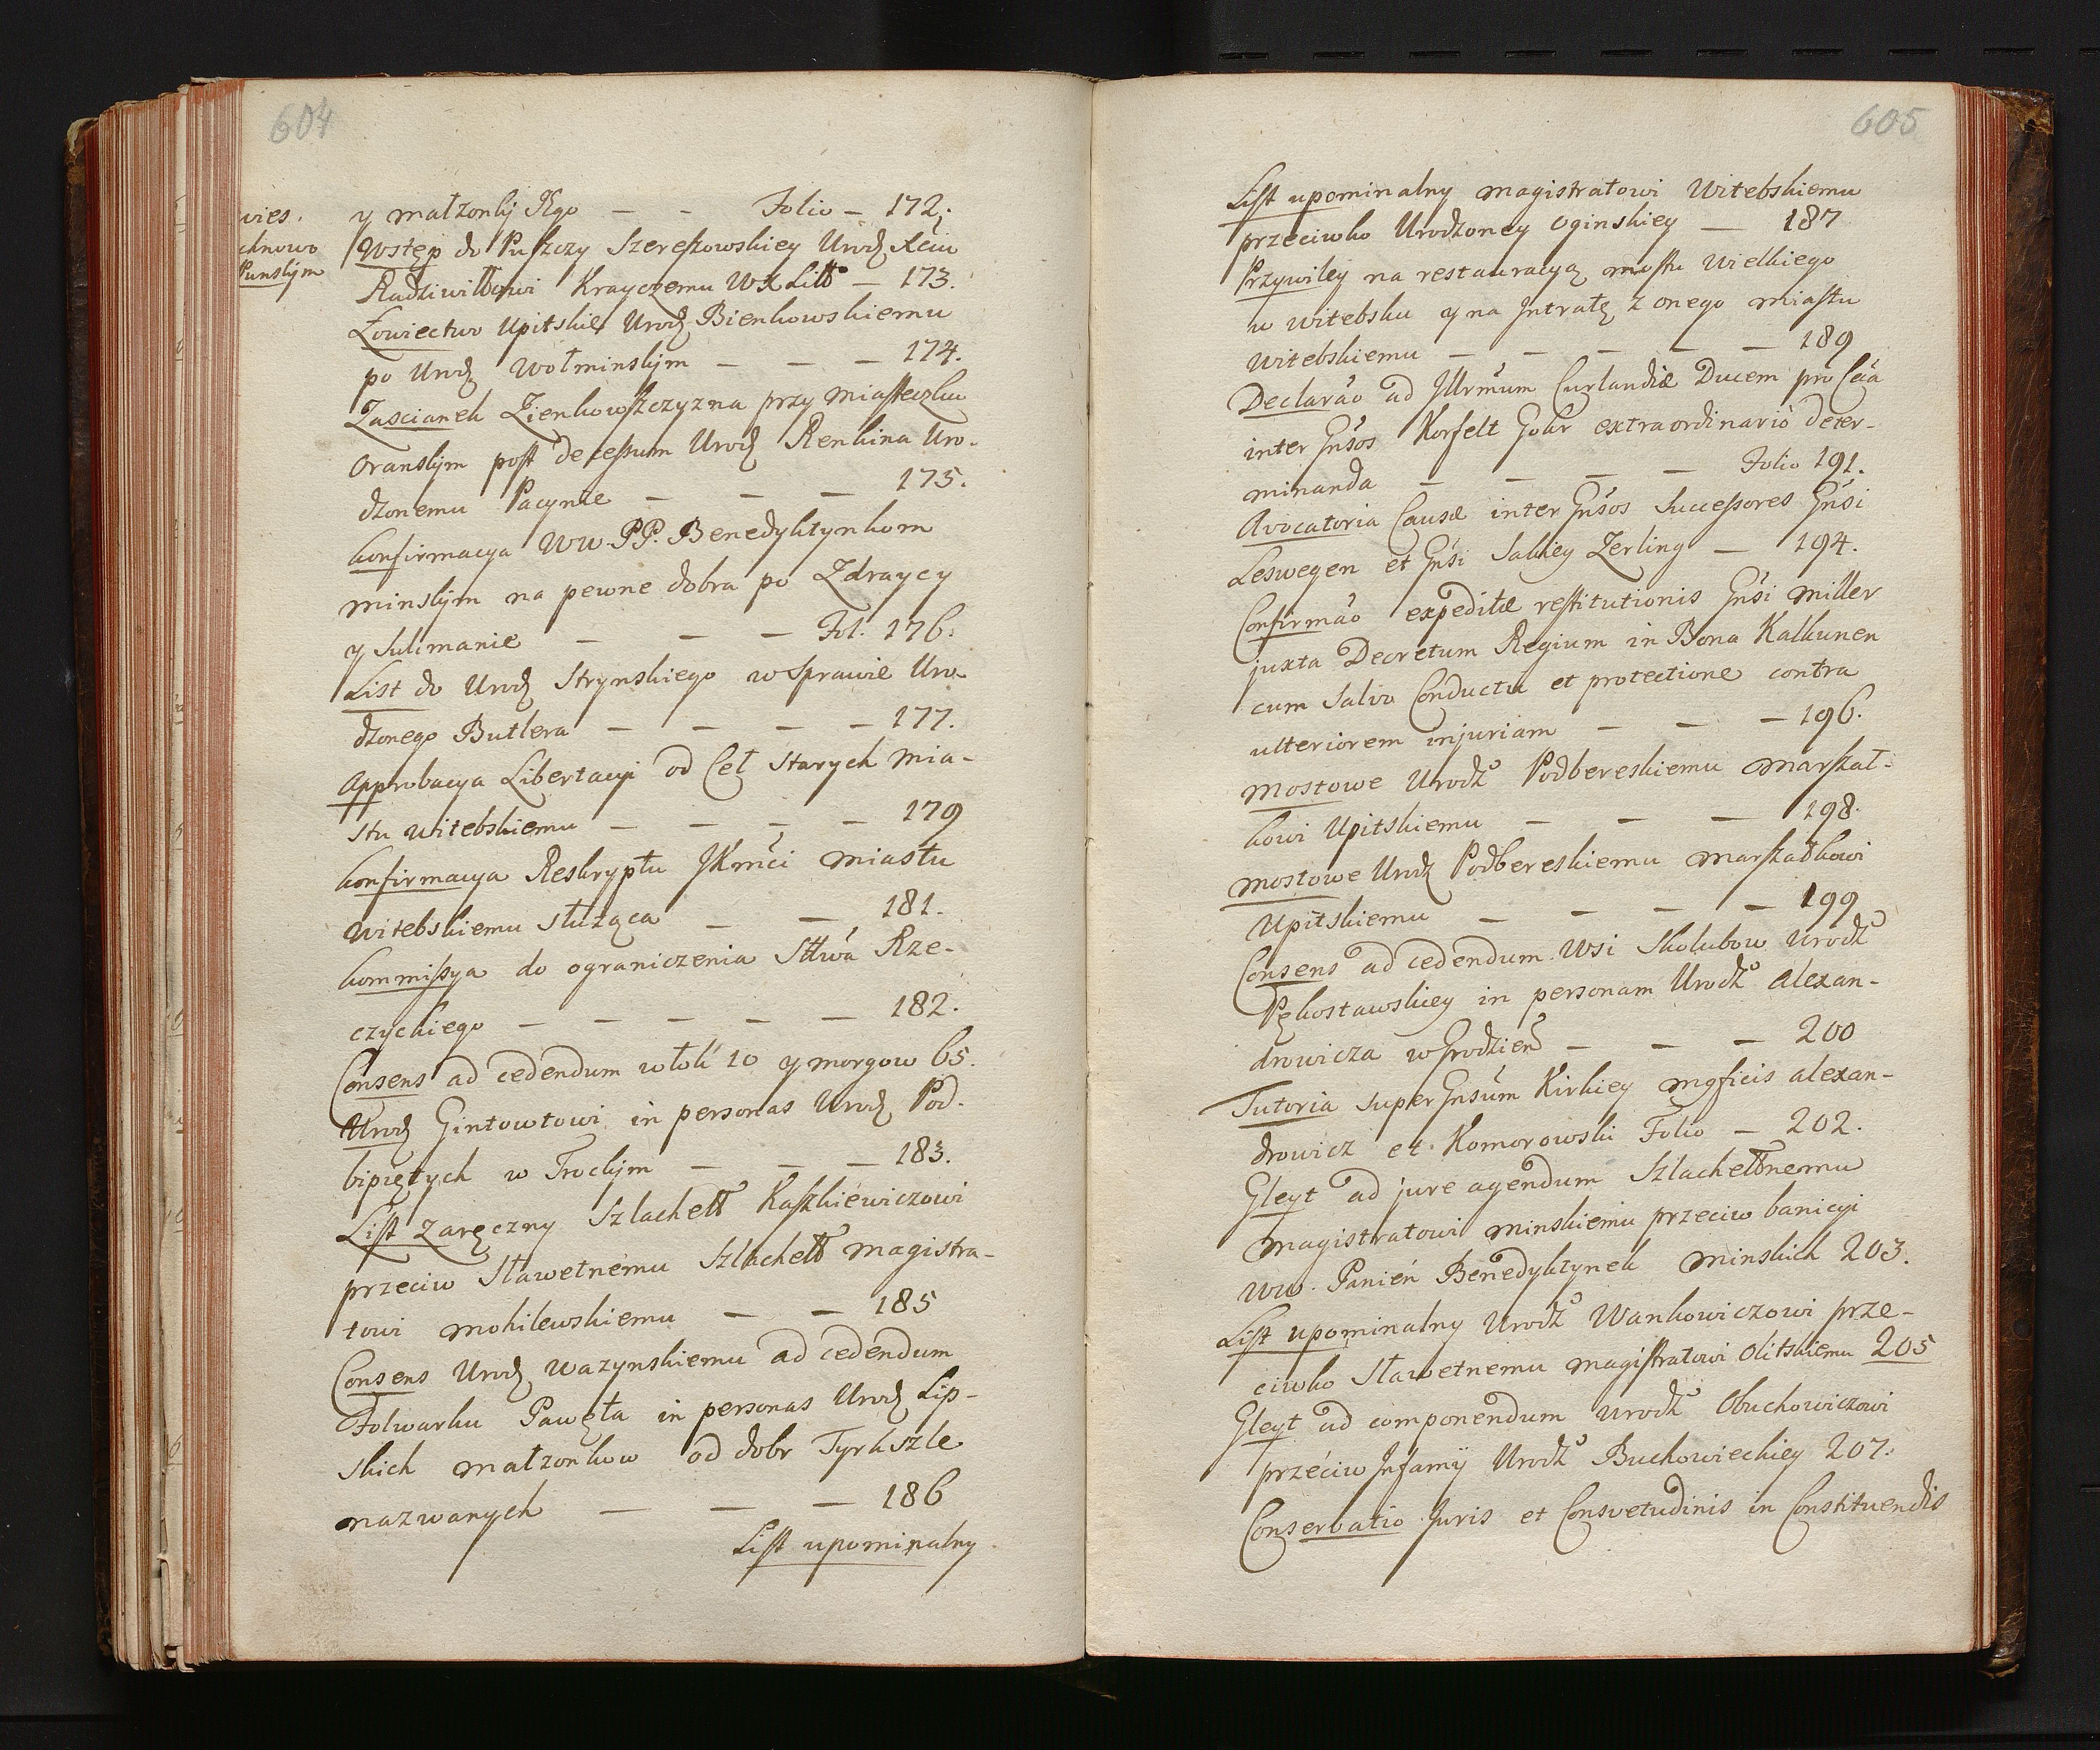 604
wies.
chnowo
Punskim
y małzonki JEgo — — Folio — 172.
Wstęp do Puszczy Szereszowskiey Urodz Xciu
Radziwiłłowi Krayczemu WX Litt — 173.
Łowiectwo Upitskie Urodz Bienkowskiemu
po Urodz Wołminskim — — — 174.
Zascianek Zienkowszczyzna przy Miasteczku
Oranskim post decessum Urodz Renkina Uro-
dzonemu Pacynie — — — 175.
Konfirmacya WW. PP. Benedyktynkom
Minskim na pewne dobra po Zdraycy
y Sulimanie — — — Fol. 176.
List do Urodz Strynskiego w Sprawie Uro-
dzonego Butlera — — — — 177.
Approbacya Libertacyi od Ceł Starych Mia-
stu Witebskiemu — — — — 179
Konfirmacya Reskryptu JKmći Miastu
Witebskiemu służąca — — 181.
Kommissya do ograniczenia Sttwa Rze-
czyckiego — — — — — 182.
Consens ad cedendum włok 10 y morgow 65.
Urodz Gintowtowi in personas Urodz Pod-
bipiętych w Trockim — — — 183.
List Zaręczny Szlachett Kaszkiewiczowi
przeciw Sławetnemu Szlachett Magistra-
towi Mohilewskiemu — — 185
Consens Urodz Wazynskiemu ad cedendum
Folwarku Pawęła in personas Urodz Lip-
skich małzonkow od dobr Tyrkszle
nazwanych — — — 186
List upominalny
605
List upominalny Magistratowi Witebskiemu
przeciwko Urodzoney Oginskiey — 187
Przywiley na restauracyą mostu Wielkiego
w Witebsku y na Intratę z onego miastu
Witebskiemu — — — — — 189
Declarão ad Illrmum Curlandiæ Ducem pro Cãa
inter Gnsos Korfelt Gohr extraordinario deter-
minanda — — — — Folio 191.
Avocatoria Causæ inter Gnsos Successores Gnsi
Leswegen et Gnsi Sakiey Zerling — 194.
Confirmão expeditæ restitutionis Gnsi Miller
juxta Decretum Regium in Bona Kalkunen
cum Salvo Conductu et protectione contra
ulteriorem injuriam — — — 196.
Mostowe Urodz Podbereskiemu Marszał-
kowi Upitskiemu — — — 198.
Mostowe Urodz Podbereskiemu Marszałkowi
Upitskiemu — — — — 199
Consens ad cedendum Wsi Skolubow Urodz
Pękostawskiey in personam Urodz Alexan-
drowicza w Grodzień — — — 200
Tutoria super Gnsum Kirkiey Mgficis Alexan-
drowicz et Komorowski Folio — 202.
Gleyt ad jure agendum Szlachettnemu
Magistratowi Minskiemu przeciw banicyi
WW. Panień Benedyktynek Minskich 203.
List upominalny Urodz Wankowiczowi prze-
ciwko Sławetnemu Magistratowi Olitskiemu 205
Gleyt ad componendum Urodz Obuchowiczowi
przeciw Infamij Urodz Buchowieckiey 207.
Conservatio Juris et Consvetudinis in Constituendis